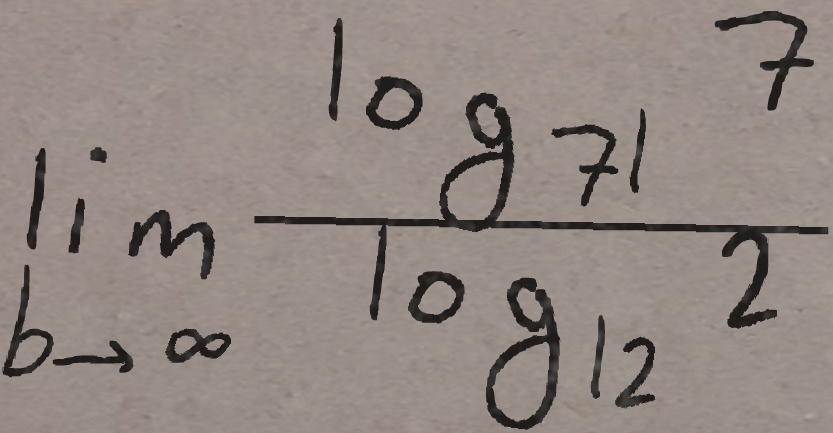 \lim_{b \to \infty} \frac{\log_{71} 7}{\log_{12} 2}